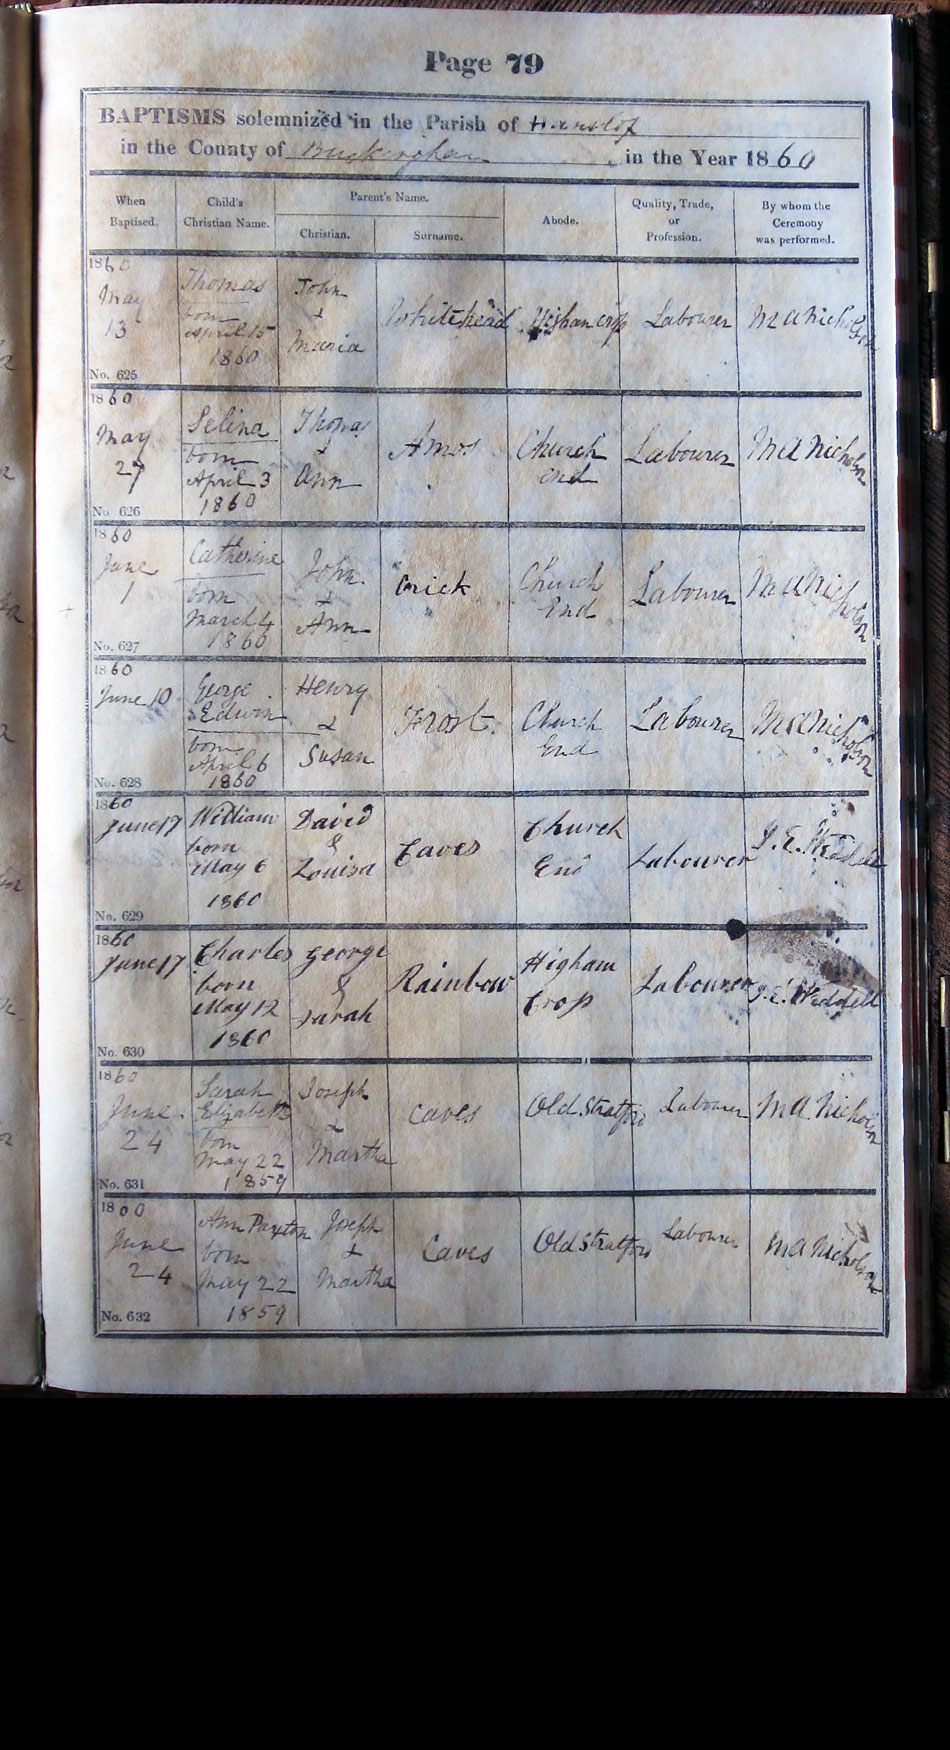 Page 79
BAPTISMS solemnized in the Parish of Hanslop
in the County of Buckingham in the Year 1860
When Baptised.
Child's Christian Name.
Parent's Name.
Christian.
Surname.
Abode.
Quality, Trade, or Profession.
By whom the Ceremony was performed.
1860
May
13
No. 625
Thomas
born
April 15
1860
John
&
Maria
Whitehead
Labourer
M A Nicholson
1860
May
27
No. 626
Selina
born
April 3
1860
Thomas
&
Ann
Amos
Church
End
Labourer
M A Nicholson
1860
June
1
No. 627
Catherine
born
March 4
1860
John
&
Ann
Crick
Church
End
Labourer
M A Nicholson
1860
June 10
No. 628
George
Edwin
born
April 6
1860
Henry
&
Susan
Frost.
Church
End
Labourer
M A Nicholson
1860
June 17
No. 629
William
born
May 6
1860
David
&
Louisa
Eaves
Church
End
Labourer
J. E. Weddell
1860
June 17
No. 630
Charles
born
May 12
1860
George
&
Sarah
Rainbow
Higham
Crop
Labourer
J. E. Weddell
1860
June
24
No. 631
Sarah
Elizabeth
born
May 22
1859
Joseph
&
Martha
Eaves
Old Stratford
Labourer
M A Nicholson
1860
June
24
No. 632
Ann Paxton
born
May 22
1859
Joseph
&
Martha
Eaves
Old Stratford
Labourer
M A Nicholson